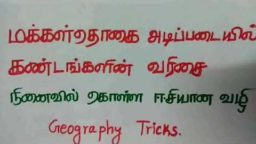 மக்கள்தொகை அடிப்படையில்
கண்டங்களின் வரிசை
நினைவில் கொள்ள ஈசியான வழி
Geography Tricks.